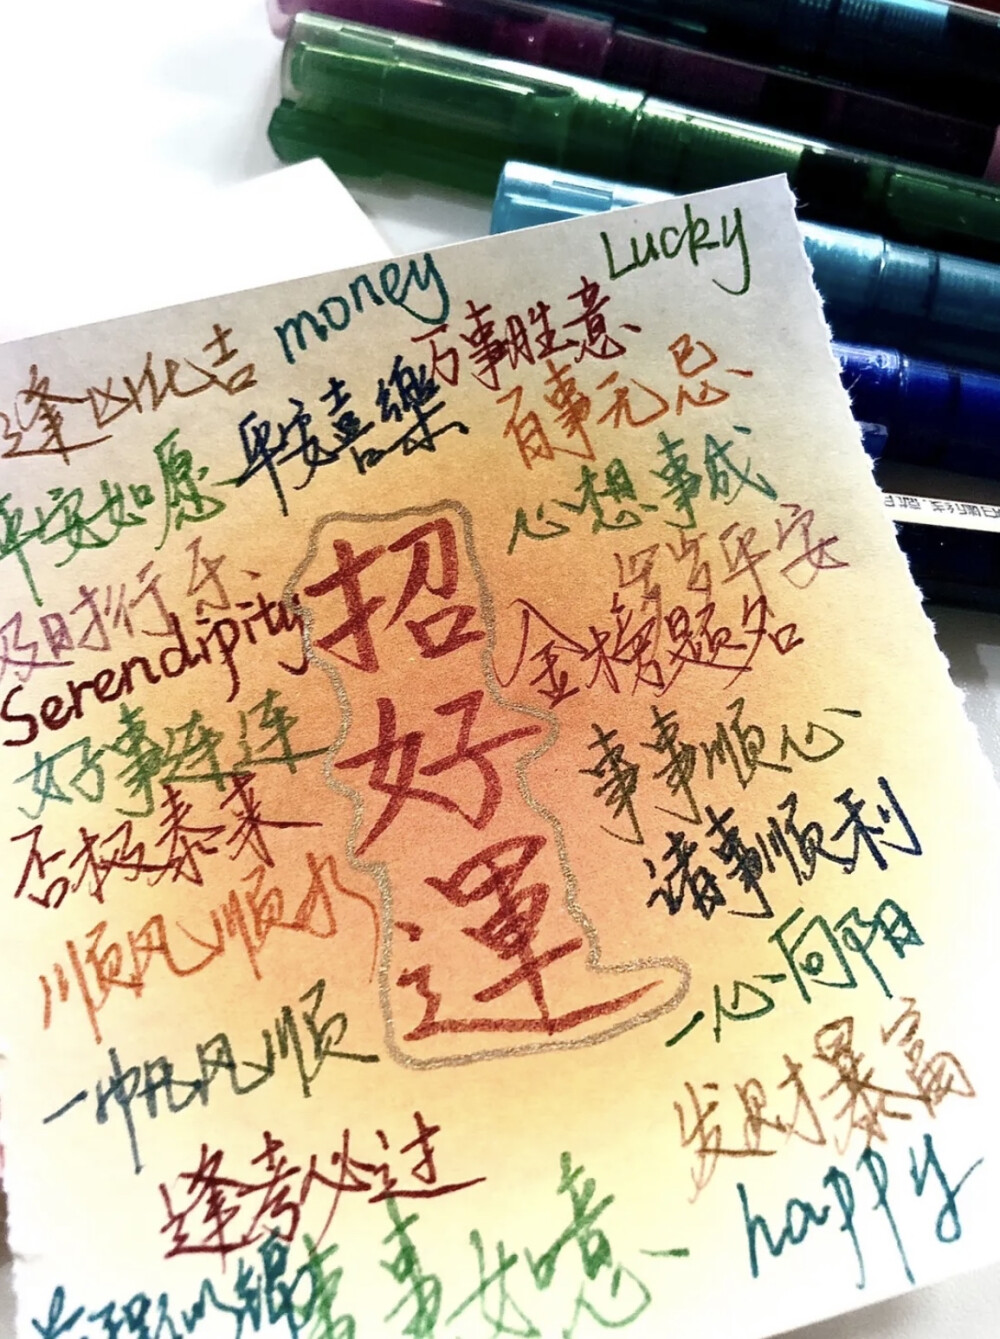 Lucky
money
万事胜意
逢凶化吉
平安喜樂
百事无忌
平安如愿
心想事成
及时行乐
岁岁平安
Serendipity
招
好
運
金榜题名
好事连连
事事顺心
否极泰来
诸事顺利
顺风顺水
一心向阳
一帆风顺
发财暴富
逢考必过
happy
事事如意
前程似锦